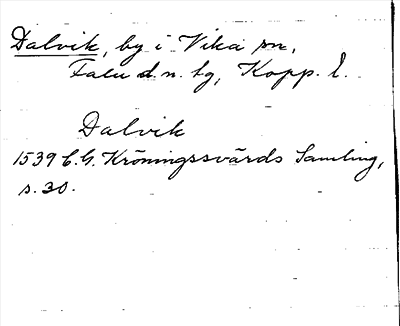 Dalvik, by i Vika sn,
Falu d.n. tg, Kopp. l.
Dalvik
1539 C.G. Kröningssvärds Samling,
s. 30.